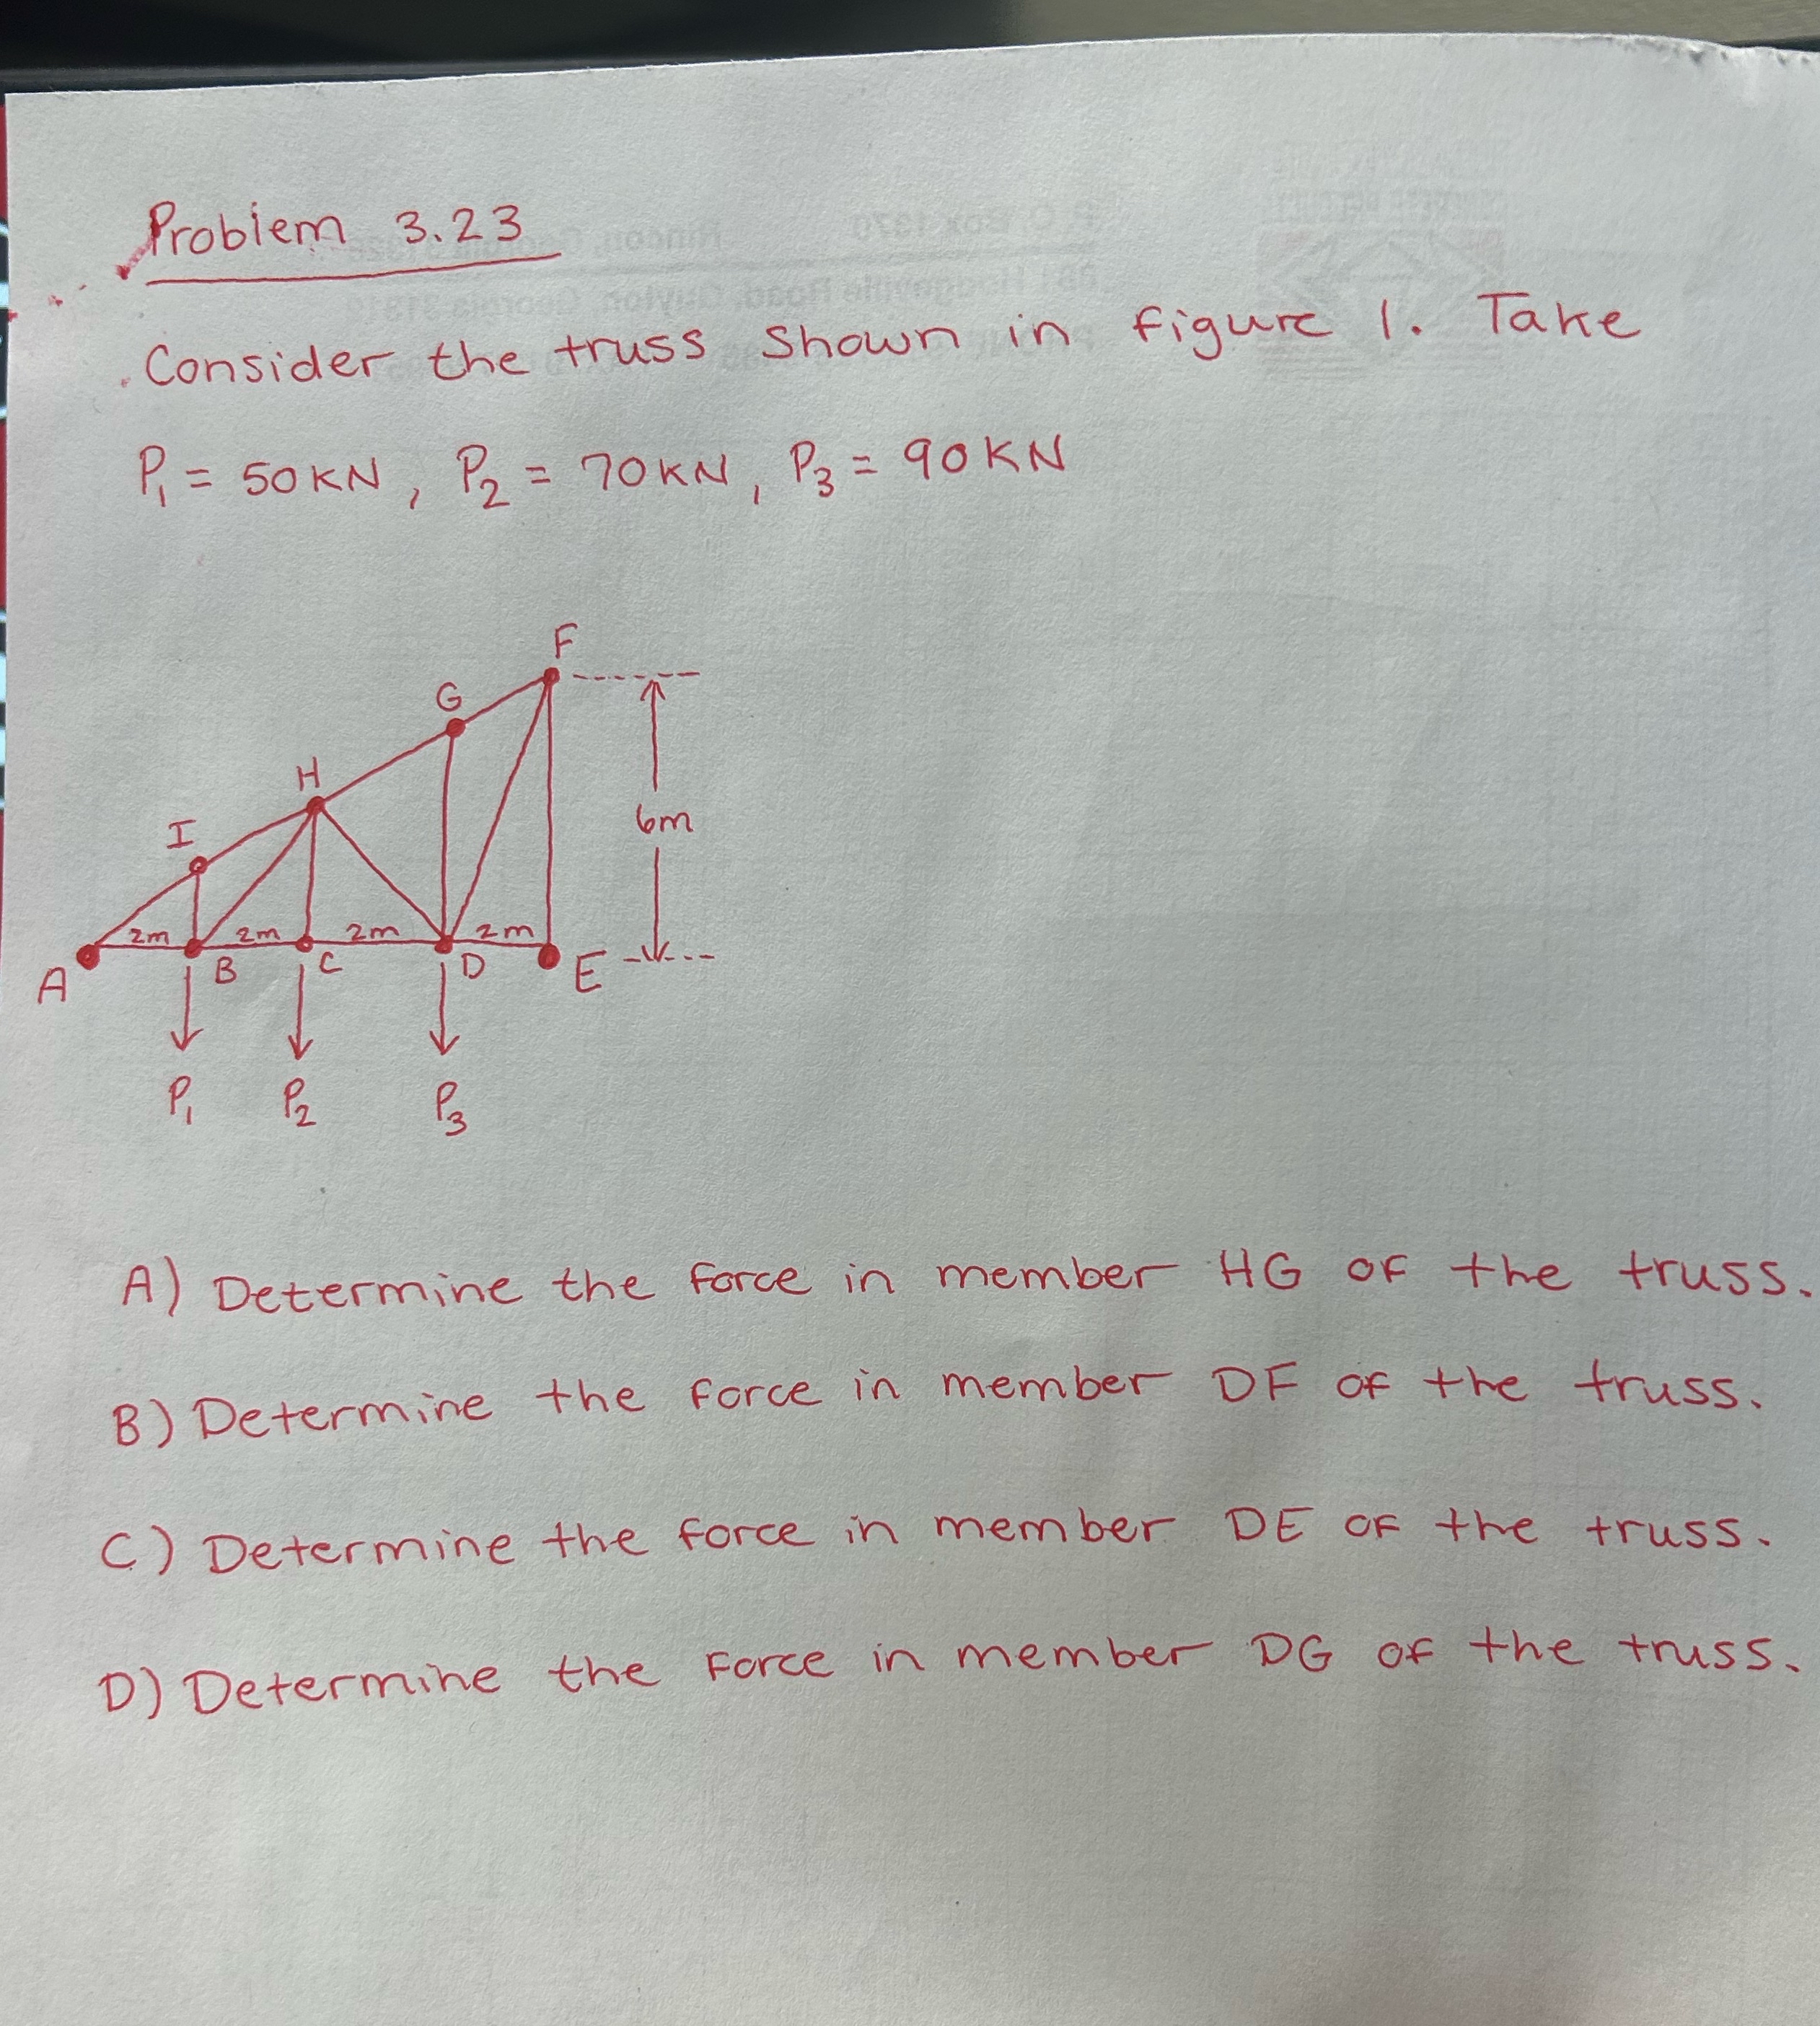 Problem 3.23
Consider the truss shown in figure 1. Take
P₁ = 50KN, P₂ = 70KN, P₃ = 90KN
F
G
H
I
6m
2m 2m 2m 2m
A B C D E
P₁ P₂ P₃
A) Determine the force in member HG of the truss.
B) Determine the force in member DF of the truss.
C) Determine the force in member DE of the truss.
D) Determine the force in member DG of the truss.